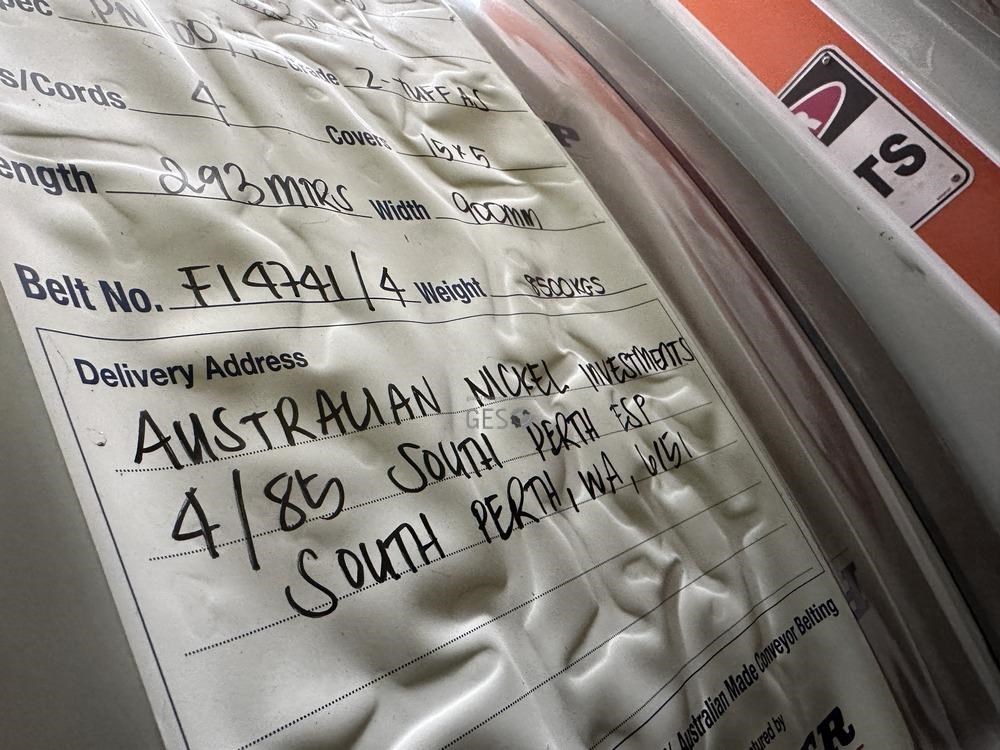 pec PN
s/Cords 4 Grade Z-TUFF AS
Covers 15x5
ength 293 MTRS Width 900mm
Belt No. F14741/4 Weight 8500KGS
Delivery Address
AUSTRALIAN NICKEL INVESTMENTS
GES
4/85 SOUTH PERTH ESP
SOUTH PERTH, WA, 6151
Australian Made Conveyor Belting
by
TS